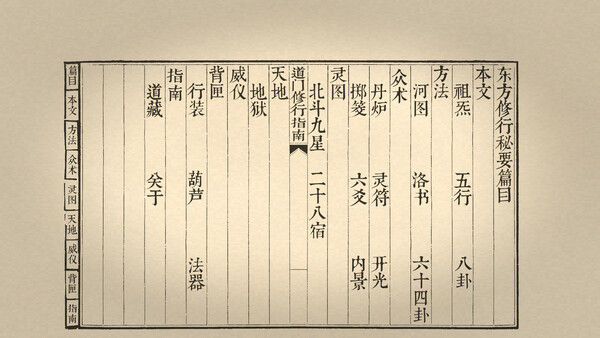 东方修行秘要篇目
本文
祖炁 五行 八卦
方法
河图 洛书 六十四卦
众术
丹炉 灵符 开光
掷筊 六爻 内景
灵图
北斗九星 二十八宿
道门修行指南
天地
地狱
威仪
背匣
行装 葫芦 法器
指南
道藏 关于
篇目
本文
方法
众术
灵图
天地
威仪
背匣
指南